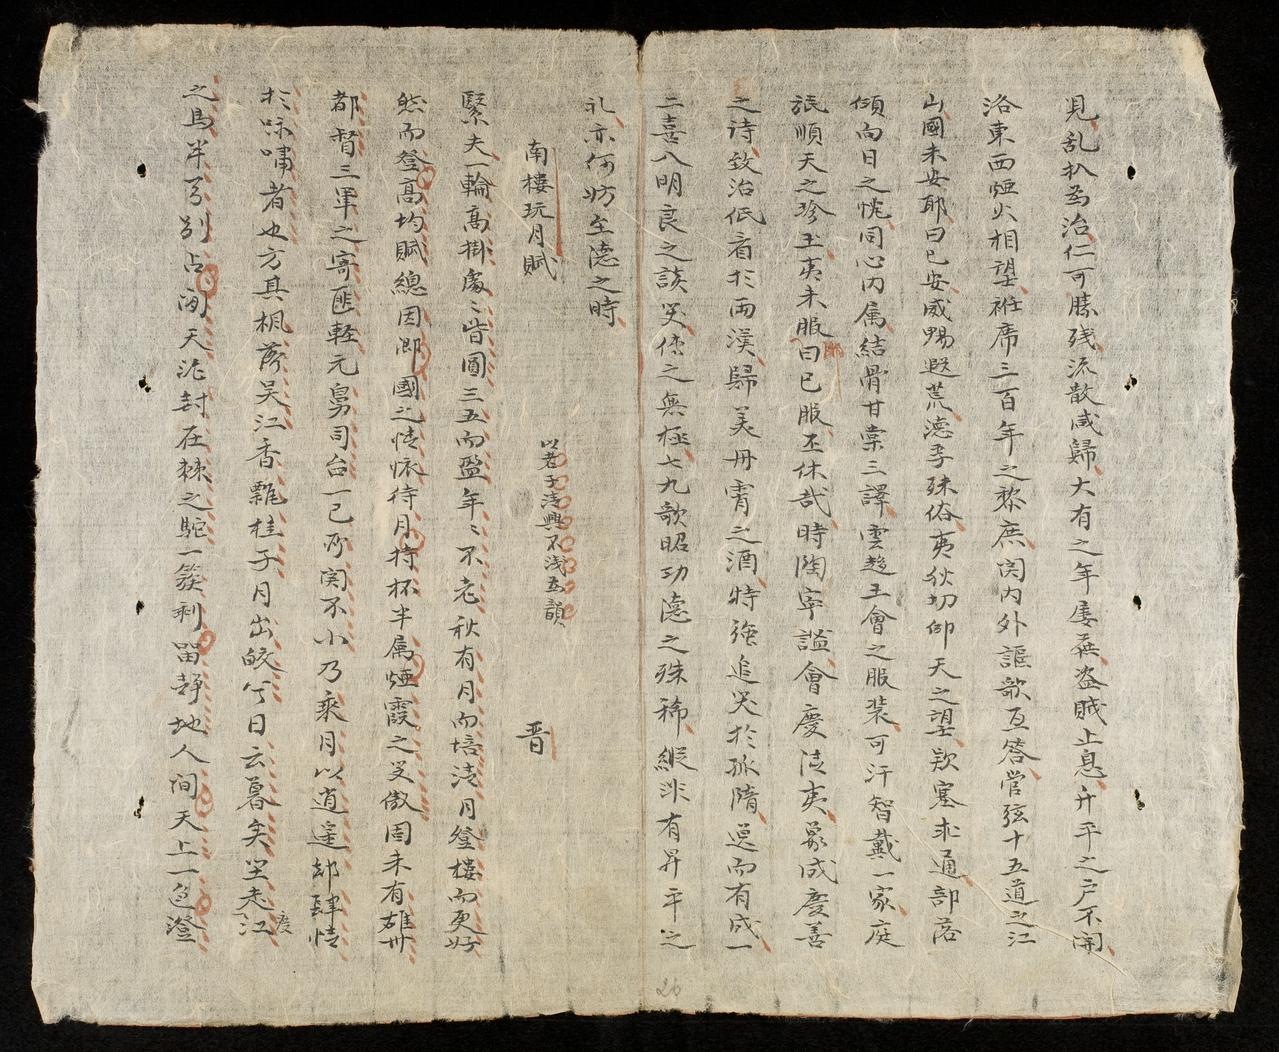 見乱扒爲治仁可勝残流散咸歸大有之年屡蕪盗賊上息升平之户不開
洛東西烟火相望袵席三百年之黎庶関内外謳歌互答管弦十五道之江
山國未安耶曰已安威暢遐荒德孚殊俗夷狄切仰天之望欵塞求通部落
傾向日之忱同心内属結骨甘棠三譯雲趍王會之服装可汗智戴一家庭
旅順天之珍玉夷未服耶曰已服丕休哉時陶寧謐會慶清夷象成慶善
之诗致治低看於两漢歸美冊霄之酒特強追笑於孤隋思而有成一
二喜八明良之該笑倦之無極七九歌昭功德之殊稀縱非有昇平之
礼亦何妨至德之時
南樓玩月賦
以老子清興不浅爲韻
晋
緊夫一輪高掛處〻皆圓三五而盈年〻不老秋有月而培清月登樓而更好
然而登高均賦總因鄉國之情懐待月持杯半属烟霞之笑傲固未有雄州
都督三軍之寄匪軽元舅司台一已所関不小乃乘月以逍遥却肆情
於咏嘯者也方其楓落吴江香飄桂子月出皎兮日云暮矣坐老江
度
之烏半弓别占洞天泥封在棘之駝一簇利留静地人间天上一色澄
26